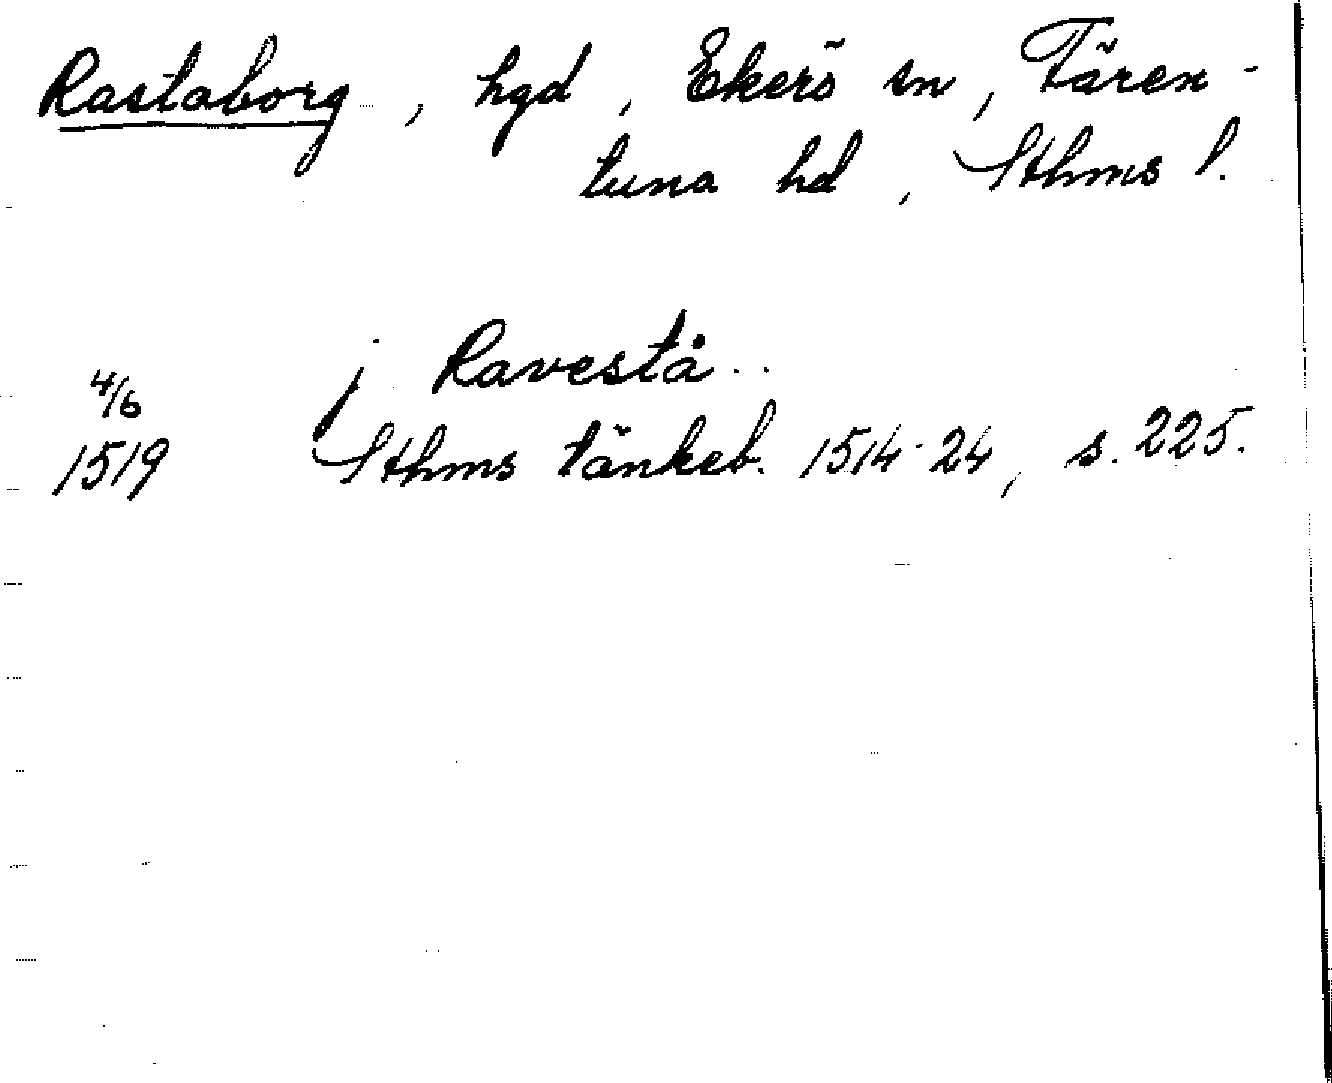 Rastaborg, hgd, Ekerö sn, Fären-
tuna hd, Sthms l.
j Ravestå
4/6
1519 Sthms tänkeb. 1514-24, s. 225.